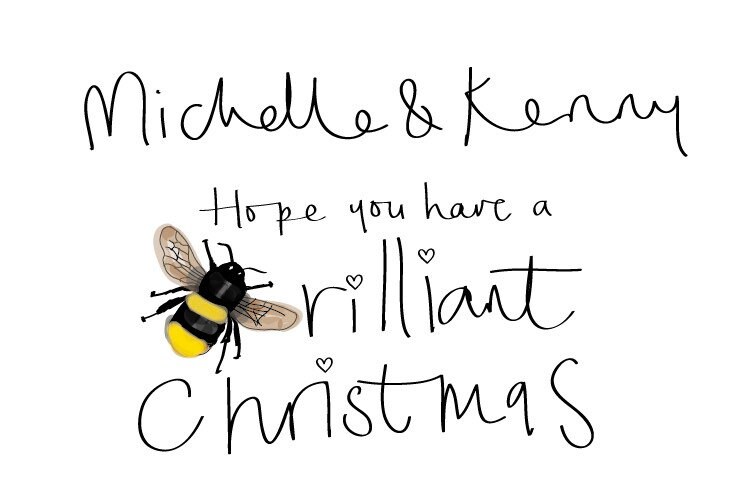 Michelle & Kenny
Hope you have a
rilliant
Christmas